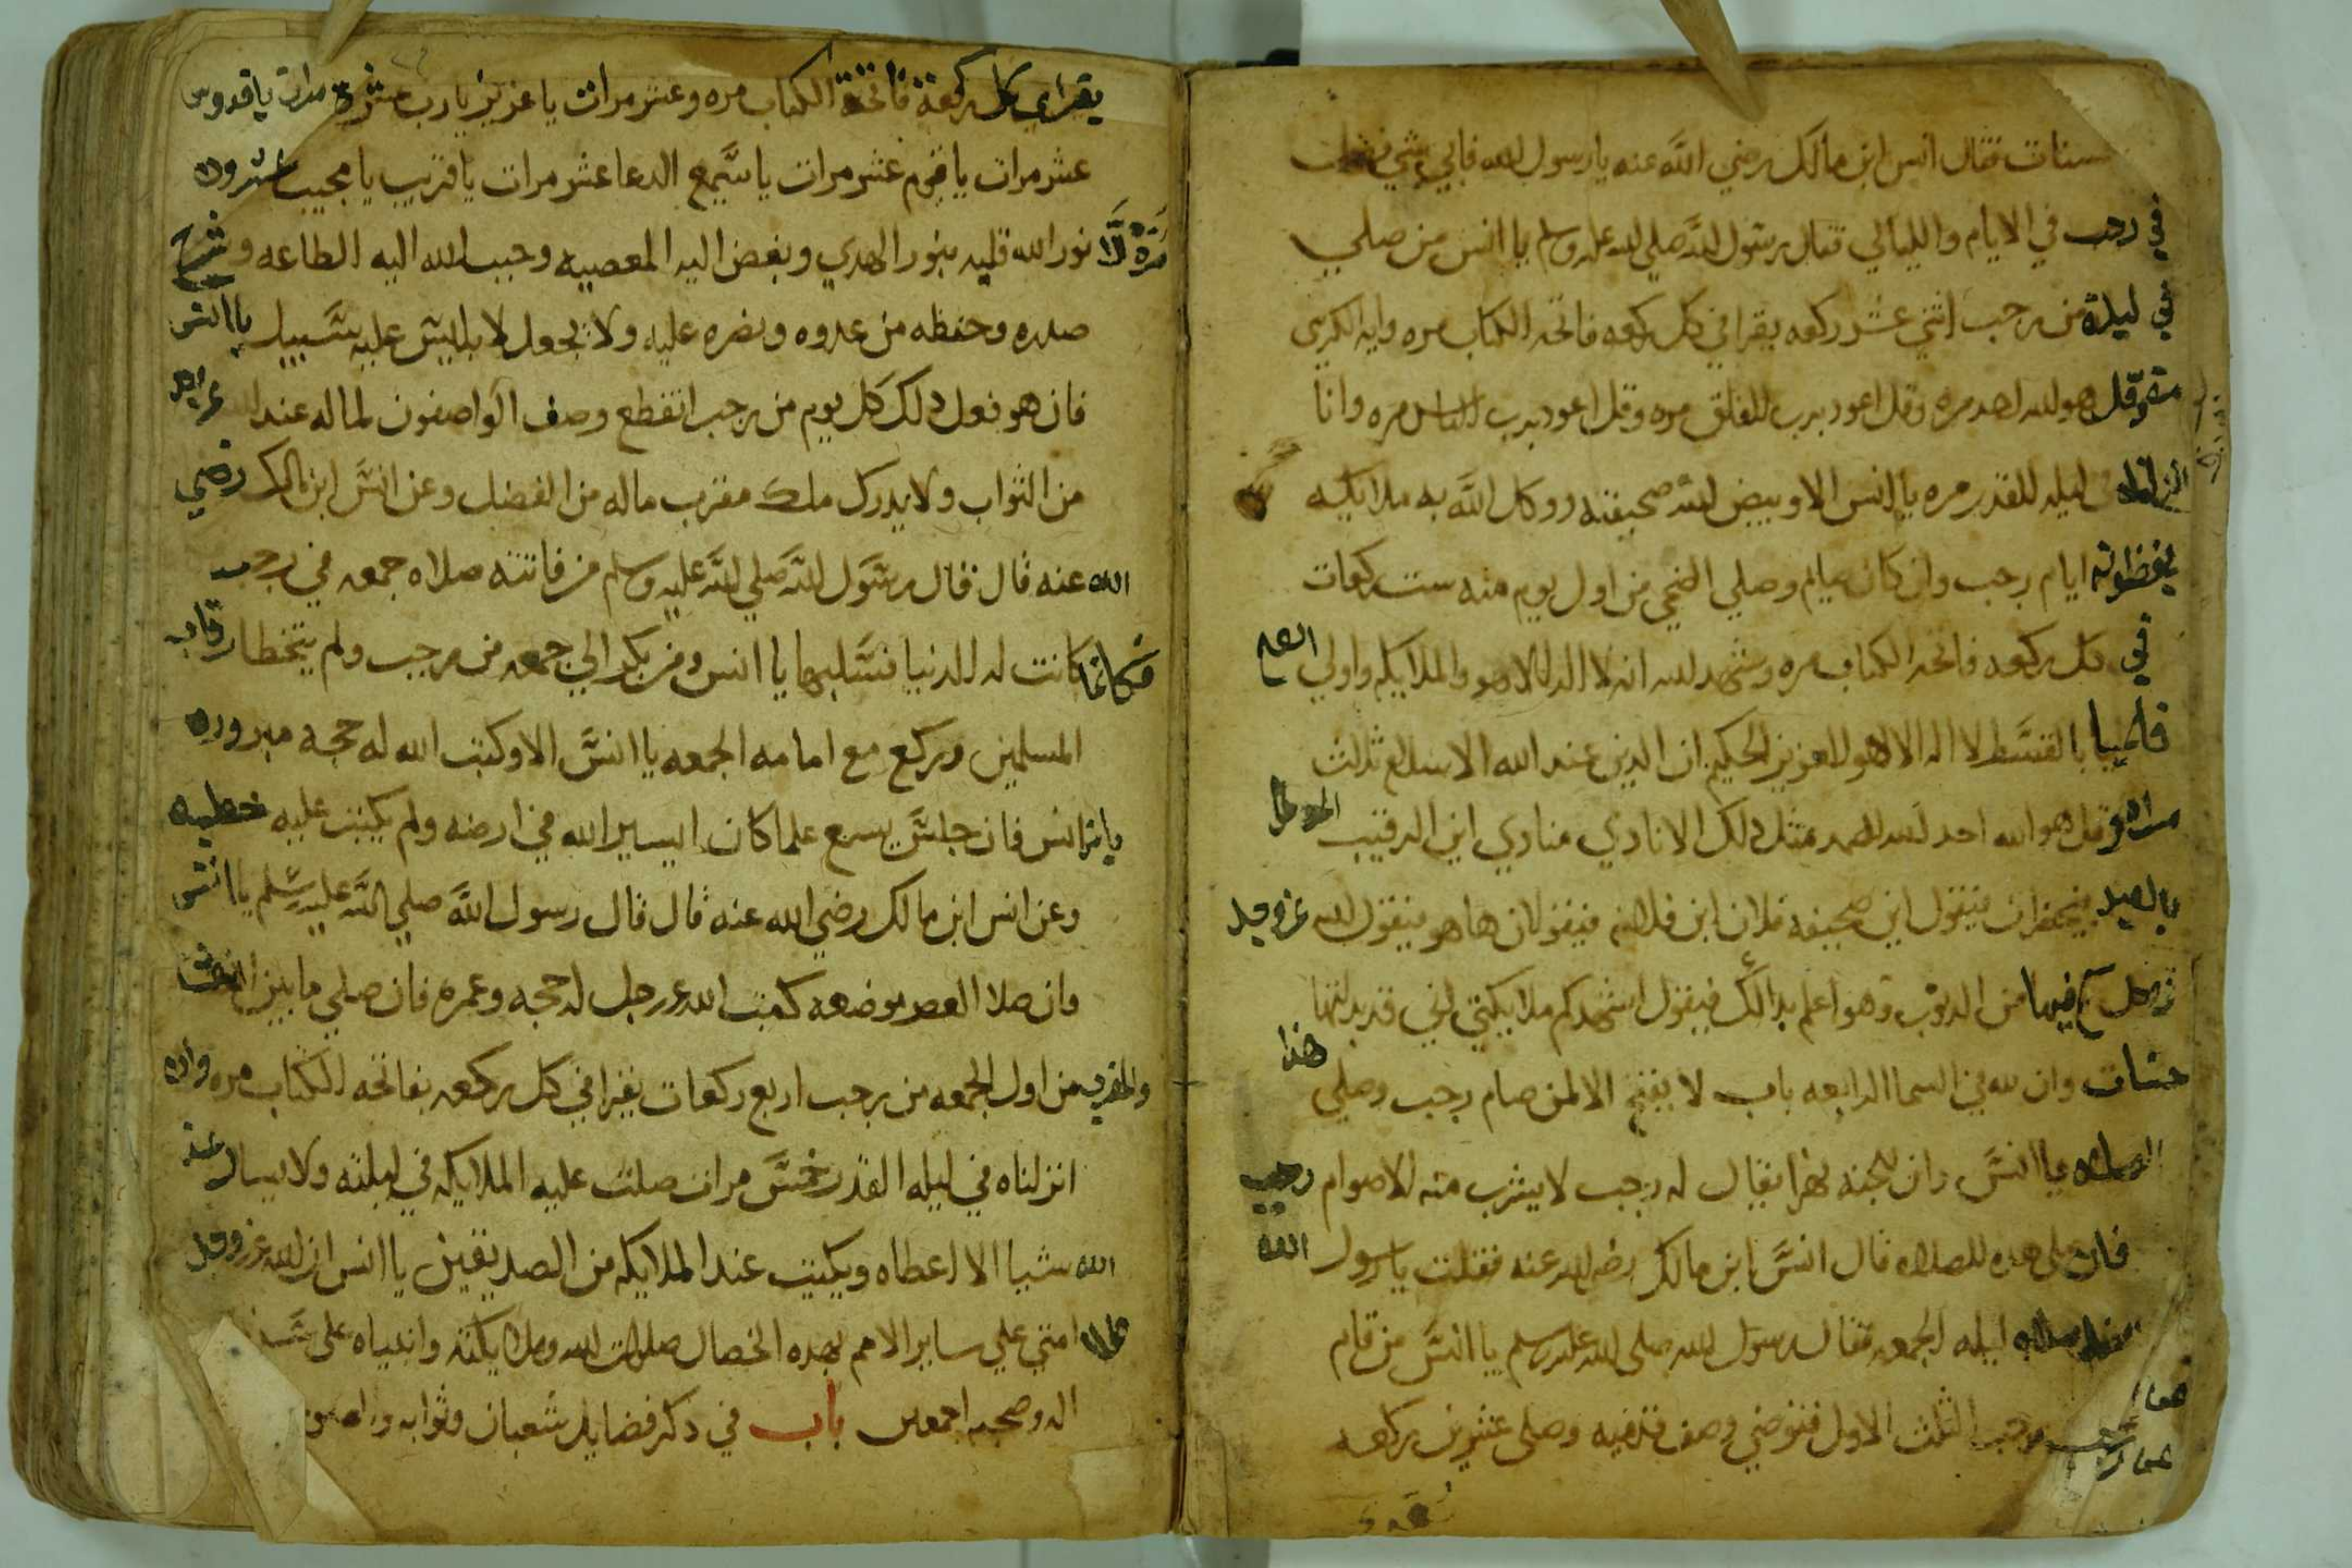 فقال انس ابن مالك رضي الله عنه يا رسول الله فاي شي
في رجب في الايام والليالي فقال رسول الله صلي الله عليه وسلم يا انس من صلي
في ليلة من رجب اثني عشر ركعه يقرا في كل ركعه فاتحه الكتاب مره وايه الكرسي
مره وقل هو الله احد مره وقل اعود برب الفلق مره وقل اعود برب الناس مره وانا
انزلناه في ليله القدر مره يا انس الا وبيض الله صحيفته ووكل الله به ملايكيه
يحفظونه ايام رجب وان كان صايم وصلي الضحي من اول يوم منه ست ركعات
في كل ركعه فاتحه الكتاب مره وشهد الله انه لا اله الا هو والملايكه واولي العلم
قايما بالقسط لا اله الا هو العزيز الحكيم ان الدين عند الله الاسلام ثلاث
مرات وقل هو الله احد الله الصمد مثل دلك الا نادي منادي اين الرقيب
فيحضران فيقول اين صحيفه فلان ابن فلان فيقولان ها هو فيقول الله عز وجل
فيها من الدنوب وهو اعلم بدالك فيقول اشهدكم ملايكتي اني قد بدلتها
حسنات وان لله في السما الرابعه باب لا يفتح الا لمن صام رجب وصلي هدا
الصلاه يا انس وان للجنه نهرا يقال له رجب لا يشرب منه الا صوام رجب
فان صلي هده الصلاه قال انس ابن مالك رضي الله عنه فقلت يا رسول الله
ليله الجمعه فقال رسول الله صلي الله عليه وسلم يا انس من قام
رجب الثلث الاول فتوضي وصف قدميه وصلي عشرين ركعه
يقرا في كل ركعة فاتحة الكتاب مره وعشر مرات يا عزيز يا رب عشرة مرات يا قدوس
عشر مرات يا قيوم عشر مرات يا سميع الدعا عشر مرات يا قريب يا مجيب عشرون
مرة الا نور الله قلبه بنور الهدي وبغض اليه المعصيه وحبب الله اليه الطاعه وشرح
صدره وحفظه من عدوه ونصره عليه ولا يجعل لابليس عليه سبيل يا انس
فان هو فعل دلك كل يوم من رجب انقطع وصف الواصفون لما له عند الله عز وجل
من الثواب ولا يدرك ملك مقرب ماله من الفضل وعن انس ابن مالك رضي
الله عنه قال قال رسول الله صلي الله عليه وسلم من فاتته صلاه جمعه في رجب
فكانما كانت له الدنيا فسلبها يا انس ومن بكر الي جمعه من رجب ولم يتخطا رقاب
المسلمين وركع مع امامه الجمعه يا انس الا وكتب الله له حجة مبروره
يا انس فان جلس يسمع علما كان اسير الله في ارضه ولم يكتب عليه خطييه
وعن انس ابن مالك رضي الله عنه قال قال رسول الله صلي الله عليه وسلم يا انس
وان صلا العصر موضعه كتب الله عز وجل له حجه وعمره فان صلي ما بين العشا
والمغرب من اول الجمعه من رجب اربع ركعات يقرا في كل ركعه بفاتحه الكتاب مره وانا
انزلناه في ليله القدر خمس مرات صلت عليه الملايكه في ليلته ولا يسال
الله شيا الا اعطاه ويكتب عند الملايكه من الصديقين يا انس ان الله عز وجل
امتي علي ساير الامم بهده الخصال صلوات الله وملايكته وانبياه علي
اله وصحبه اجمعين باب في دكر فضايل شعبان وثوابه